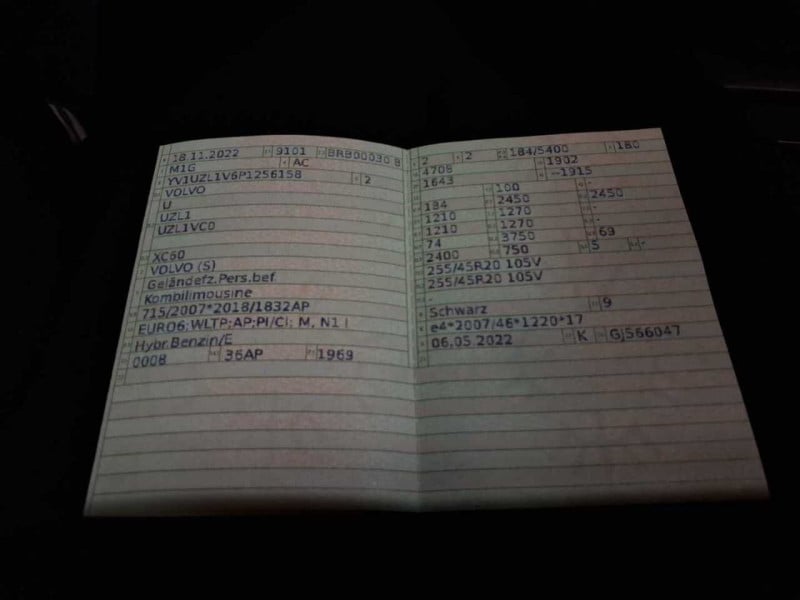 18.11.2022 9101 BRB00030 8
M1G AC
YV1UZL1V6P1256158 2
VOLVO
U
UZL1
UZL1VC0
XC60
VOLVO (S)
Geländefz.Pers.bef
Kombilimousine
715/2007*2018/1832AP
EURO6;WLTP;AP;PI/CI; M, N1 I
Hybr.Benzin/E
0008 36AP 1969
2 2 184/5400 180
4708 1902
1643 --1915
100 -
184 2450 2450
1210 1270 -
1210 1270 -
74 3750 69
2400 750 5 -
255/45R20 105V
255/45R20 105V
-
Schwarz 9
e4*2007/46*1220*17
06.05.2022 K GJ566047